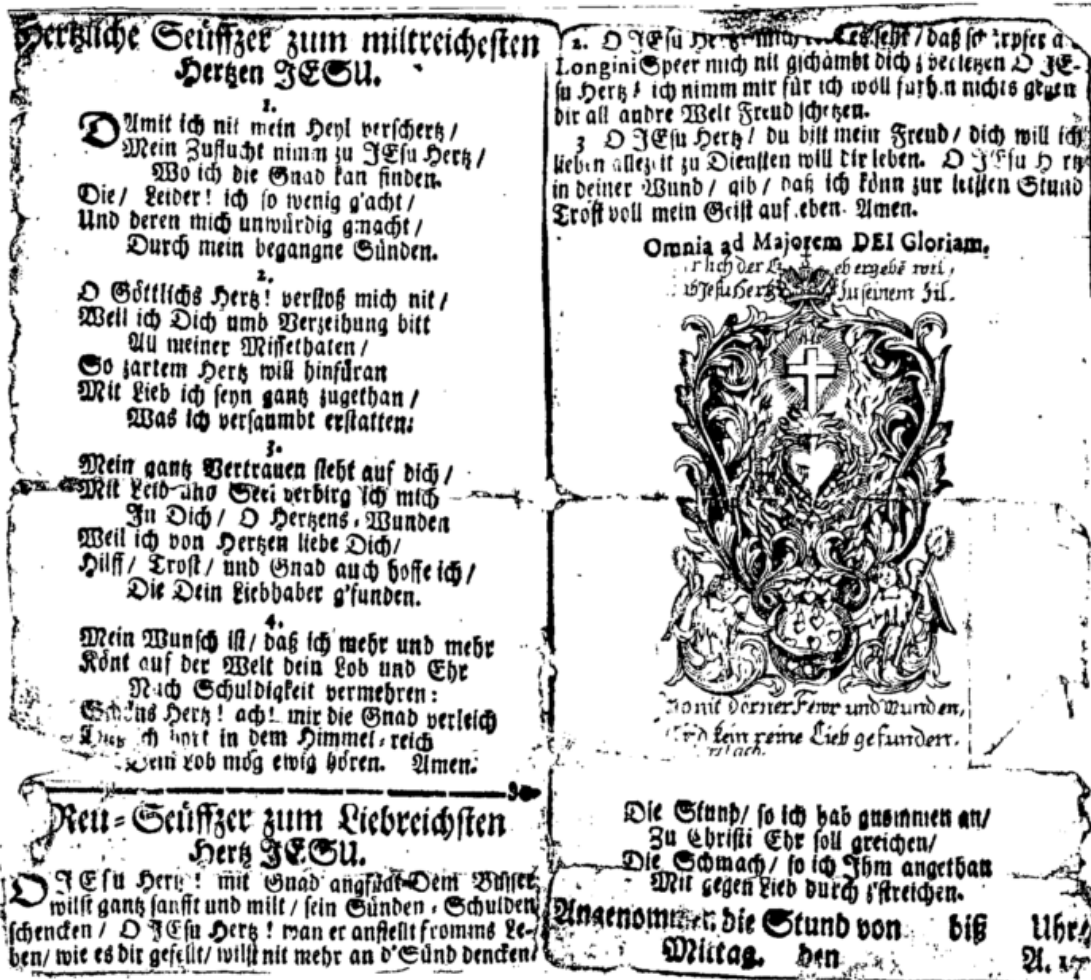 Hertzliche Seüffzer zum miltreichesten
Hertzen JESU.
1.
DAmit ich nit mein Heyl verschertz /
Mein Zuflucht nimm zu JEsu Hertz /
Wo ich die Gnad kan finden.
Die / Leider! ich so wenig g'acht /
Und deren mich unwürdig gmacht /
Durch mein begangne Sünden.
2.
O Göttlichs Hertz! verstoß mich nit /
Weil ich Dich umb Verzeihung bitt
All meiner Missethaten /
So zartem Hertz will hinfüran
Mit Lieb ich seyn gantz zugethan /
Was ich versaumbt erstatten:
3.
Mein gantz Vertrauen steht auf dich /
Mit Leib und Seel verbirg ich mich
In Dich / O Hertzens-Wunden
Weil ich von Hertzen liebe Dich /
Hilff / Trost / und Gnad auch hoffe ich /
Die Dein Liebhaber g'funden.
4.
Mein Wunsch ist / daß ich mehr und mehr
Könt auf der Welt dein Lob und Ehr
Nach Schuldigkeit vermehren:
Schöns Hertz! ach! mir die Gnad verleich
ich dort in dem Himmel-reich
Dein Lob mög ewig hören. Amen.
Reu-Seüffzer zum Liebreichsten
Hertz JESU.
O JEsu Hertz! mit Gnad Dem Büsser
wilst gantz sanfft und milt / sein Sünden-Schulden
schencken / O JEsu Hertz! wan er anstellt fromms Le-
ben / wie es dir gefellt / willst nit mehr an d'Sünd dencken /
2. O JEsu Hertz mich / daß
Longini Speer mich nit gschämbt dich verletzen O JE-
su Hertz! ich nimm mir für ich woll fürhin nichts gegen
dir all andre Welt Freud schetzen.
3 O JEsu Hertz / du bist mein Freud / dich will ich
lieben allezeit zu Diensten will dir leben. O JEsu Hertz
in deiner Wund / gib / daß ich könn zur letsten Stund
Trost voll mein Geist aufgeben. Amen.
Omnia ad Majorem DEI Gloriam.
sich der ergebe will,
Jesu Hertz zu seinem Zil.
IHS
mit Dorner Fewr und Wunden,
kein reine Lieb gefunden.
Die Stund / so ich hab gnommen an /
Zu Christi Ehr soll greichen /
Die Schmach / so ich Ihm angethan
Mit gegen Lieb durch z'streichen.
Angenommen die Stund von biß Uhr /
Mittag. den A. 17